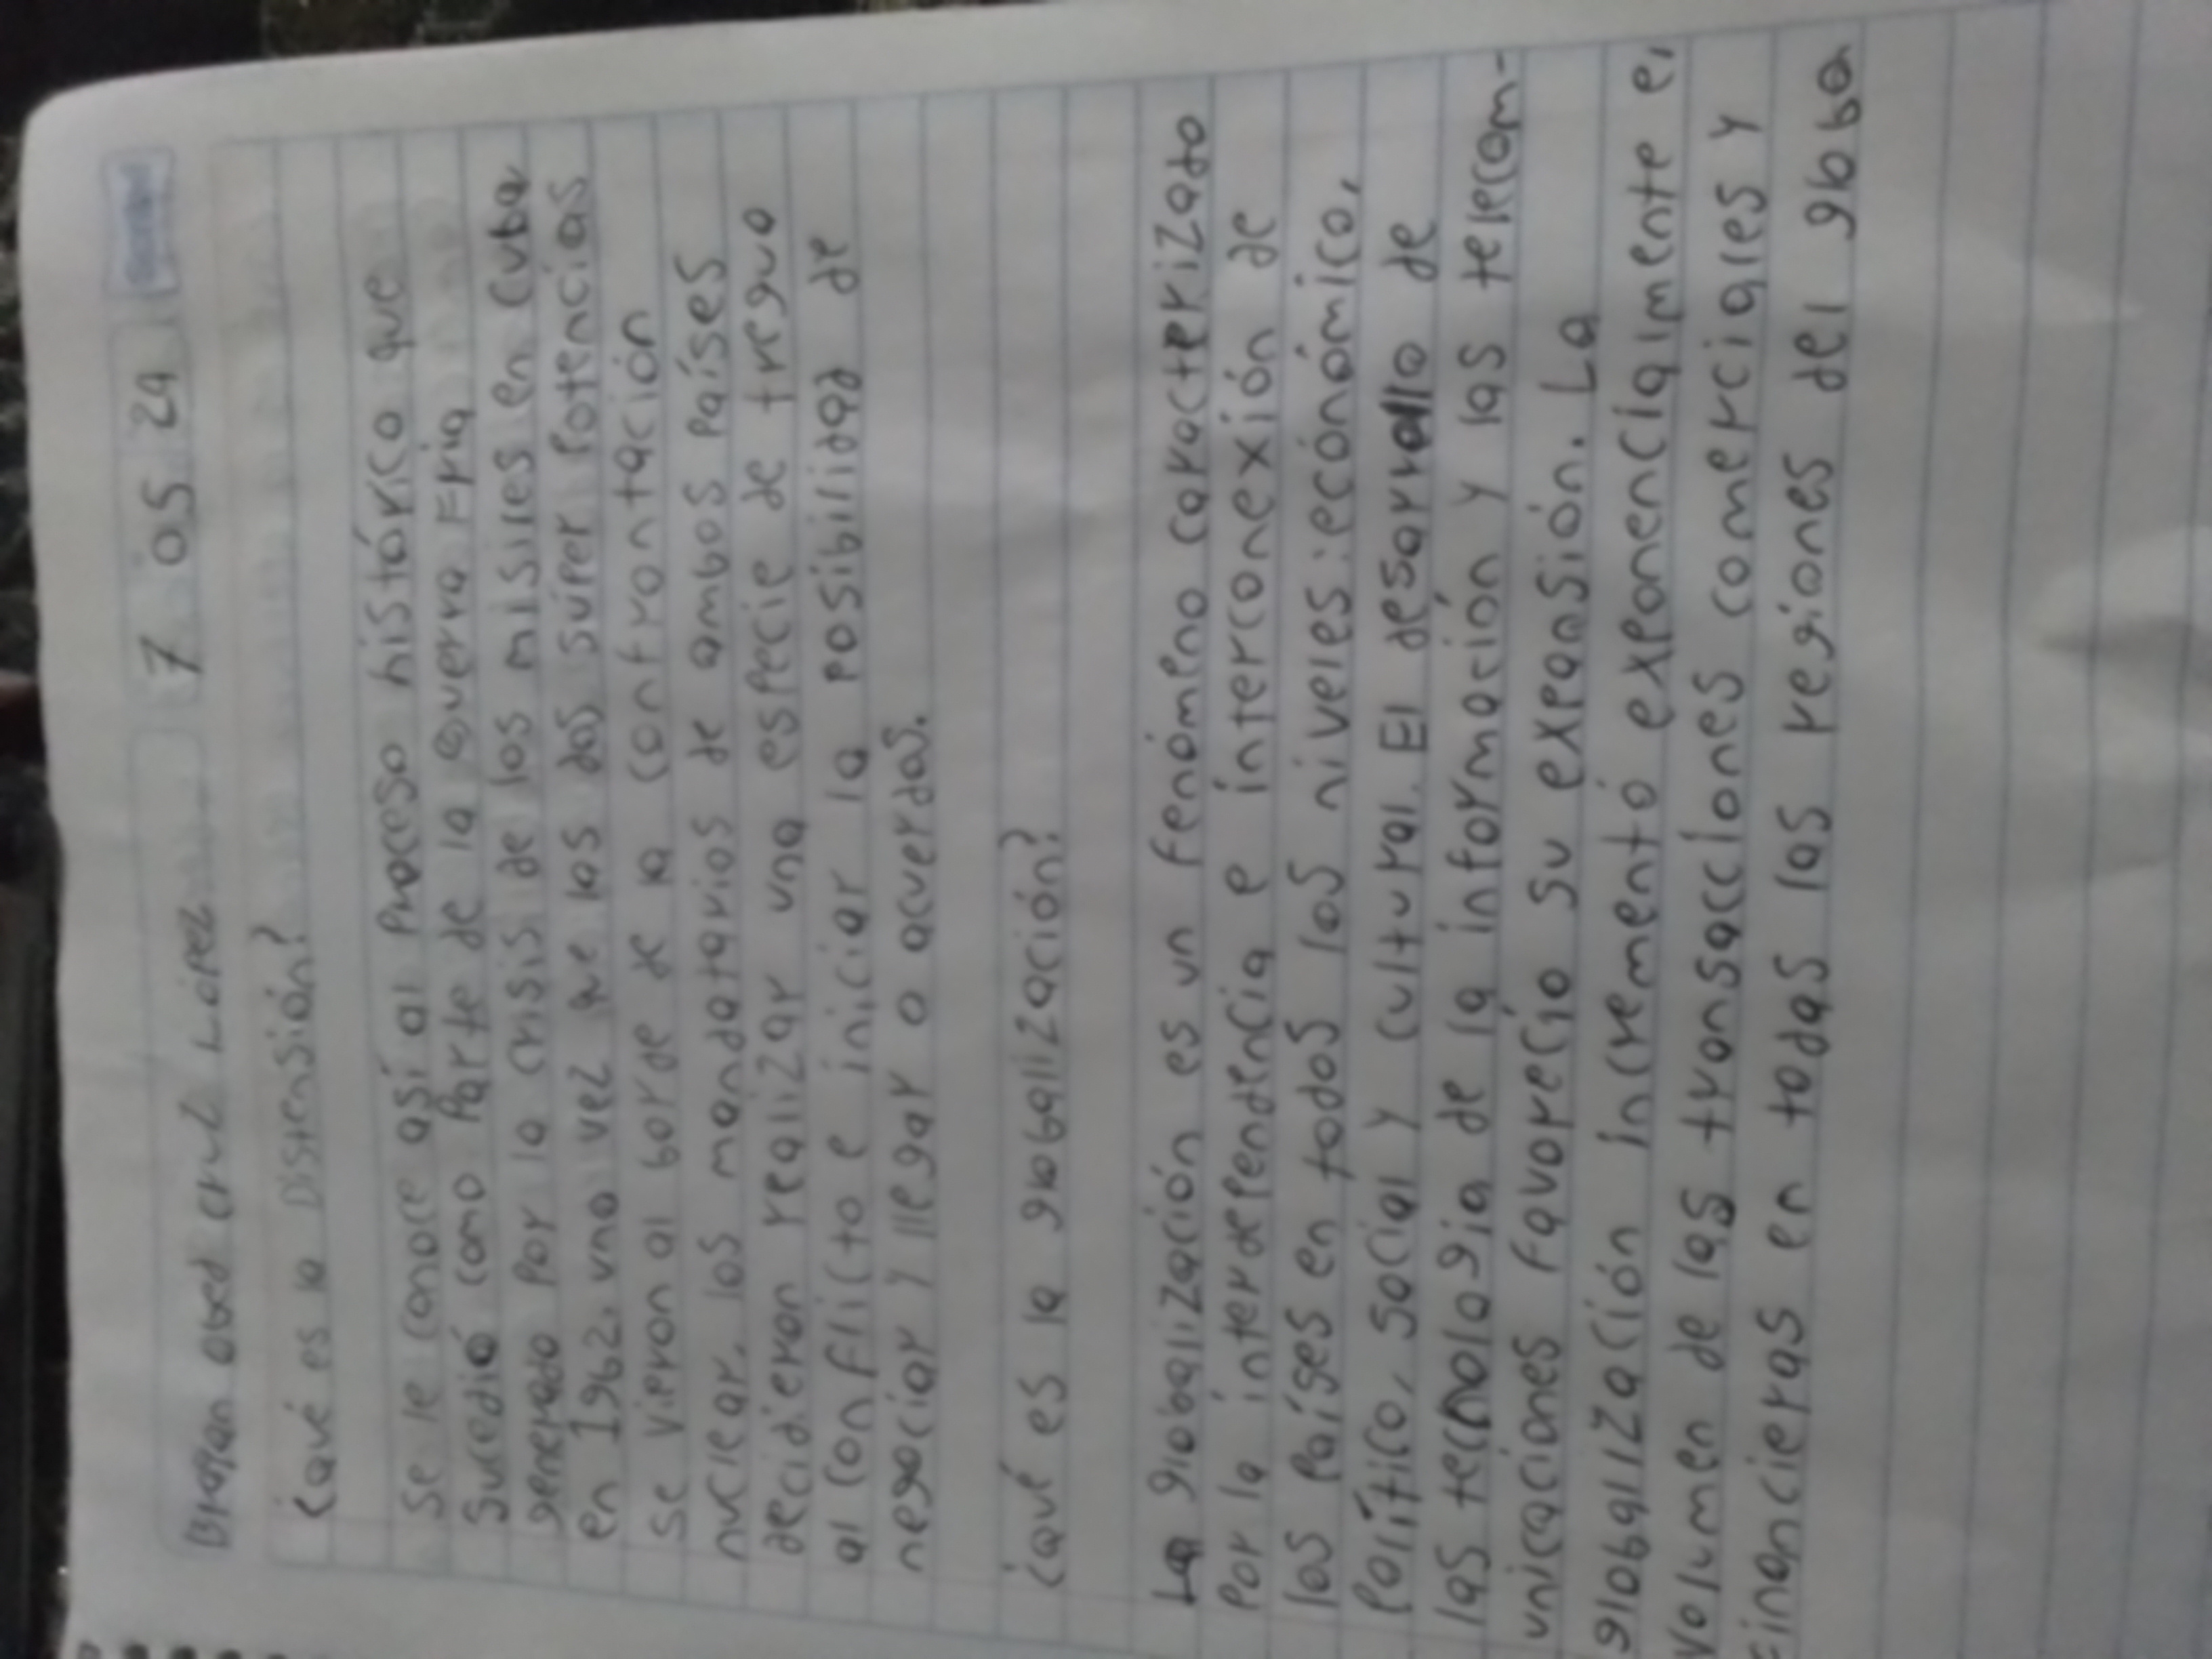 Brayan obed cruz López 7 05 24
¿Qué es la Distensión?
Se le conoce así al Proceso histórico que
sucedió como Parte de la Guerra Fria
generado por la crisis de los misiles en Cuba
en 1962, una vez que las dos súper Potencias
se vieron al borde de la confrontación
nuclear, los mandatarios de ambos países
decidieron realizar una especie de tregua
al conflicto e iniciar la posibilidad de
negociar y llegar o acuerdos.
¿Qué es la globalización?
La globalización es un fenómeno caracterizado
Por la interdependencia e interconexión de
los Países en todos los niveles: económico,
Político, social y cultural. El desarrollo de
las tecnología de la información y las telecom-
unicaciones favoreció su expansión. La
globalización incrementó exponencialmente el
volumen de las transacciones comerciales y
Financieras en todas las regiones del globo